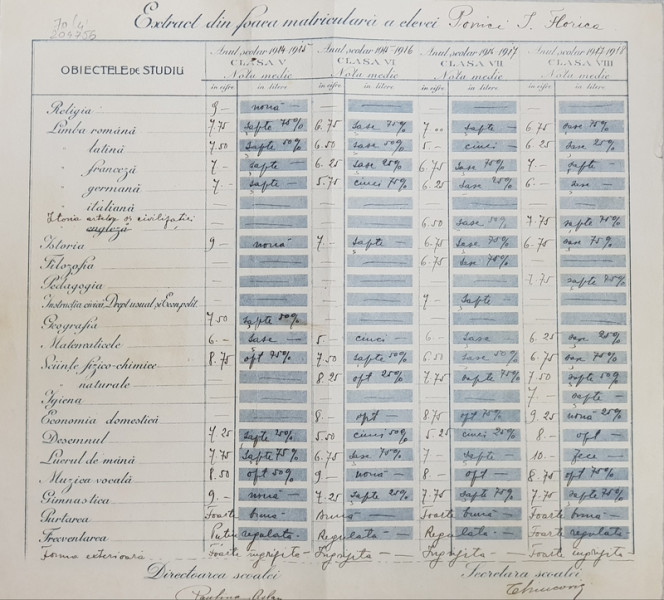 Extract din foaea matriculară a elevei Ponici I. Florica
Anul școlar 1914 1915 Anul școlar 1915 1916 Anul școlar 1916 1917 Anul școlar 1917 1918
OBIECTELE DE STUDIU CLASA V CLASA VI CLASA VII CLASA VIII
Nota medie Nota medie Nota medie Nota medie
in cifre in litere in cifre in litere in cifre in litere in cifre in litere
Religia 9 — nouă — — — — — — —
Limba română 7.75 șapte 75% 6.75 șase 75% 7 .. șapte — 6.75 șase 75%
" latină 7.50 șapte 50% 6.50 șase 50% 5.— cinci — 6 25 șase 25%
" franceză 7 — șapte — 6.25 șase 25% 6.75 șase 75% 7 — șapte —
" germană 7 — șapte — 5.75 cinci 75% 6.25 șase 25% 6 — șase —
" italiană — — — — — — — —
Istoria artelor și civilizației
engleză — — — — 6.50 șase 50% 7.75 șapte 75%
Istoria 9 — nouă 7 — șapte — 6.75 șase 75% 6.75 șase 75%
Filozofia — — — — 6.75 șase 75% — —
Pedagogia — — — — — — 7.75 șapte 75%
Instrucția civică, Drept usual și Econ. polit. — — — — 7 — șapte — —
Geografia 7.50 șapte 50% — — — — — —
Matematicele 6 — șase — 5.— cinci — 6 — șase 6.25 șase 25%
Științe fizico-chimice 8.75 opt 75% 7.50 șapte 50% 6.50 șase 50% 6.75 șase 75%
" naturale — — 8.25 opt 25% 7.75 șapte 75% 7.50 șapte 50%
Igiena — — — — — — 7 — șapte —
Economia domestică — — 8.— opt — 8.75 opt 75% 9.25 nouă 25%
Desemnul 7.25 șapte 25% 5.50 cinci 50% 5.25 cinci 25% 8. — opt —
Lucrul de mână 7.75 șapte 75% 6.75 șase 75% 8 — opt — 10.— zece —
Muzica vocală 8.50 opt 50% 9 — nouă — 8 — opt — 8.75 opt 75%
Gimnastica 9. — nouă — 7.25 șapte 25% 7.75 șapte 75% 7.75 șapte 75%
Purtarea Foarte bună Bună — Foarte bună — Foarte bună —
Frecventarea regulată Regulată — Regulată — Foarte regulată
Forma exterioară Foarte îngrijită — Îngrijită — Îngrijită — Foarte îngrijită —
Directoarea scoalei Secretara scoalei
Paulina Aslan